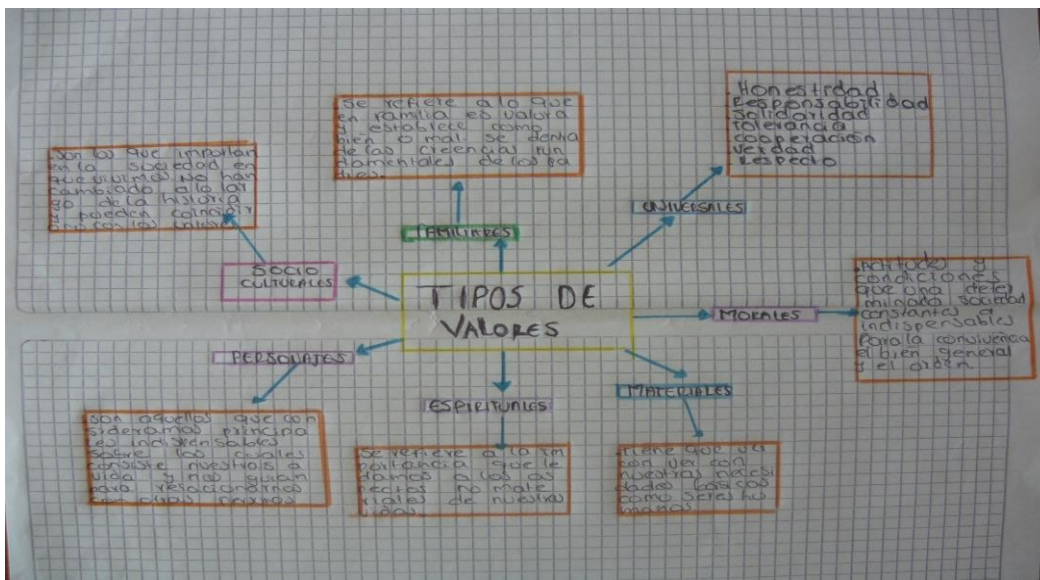 TIPOS DE
VALORES
SOCIO
CULTURALES
son los que importan
en la sociedad en
que vivimos. No han
cambiado a lo lar
go de la historia
y pueden coincidir
o no con los
FAMILIARES
se refiere a lo que
en familia es valora
y establece como
bien o mal. se
de las creencias fun
damentales de los pa
dres.
UNIVERSALES
Honestidad
Responsabilidad
Solidaridad
tolerancia
cooperación
verdad
Respeto
MORALES
Actitudes y
condiciones
que una deter
minada sociedad
constantes a
indispensables
para la convivencia
el bien general
y el orden
MATERIALES
tiene que ver
con ver con
nuestras necesi
dades basicas
como seres hu
manos
ESPIRITUALES
Se refiere a la im
portancia que le
damos a los as
pectos no mate
riales de nuestra
vidas.
PERSONALES
son aquellos que con
sideramos principa
les indispensables
sobre los cuales
consiste nuestra
vida y nos guian
para relacionarnos
con otras